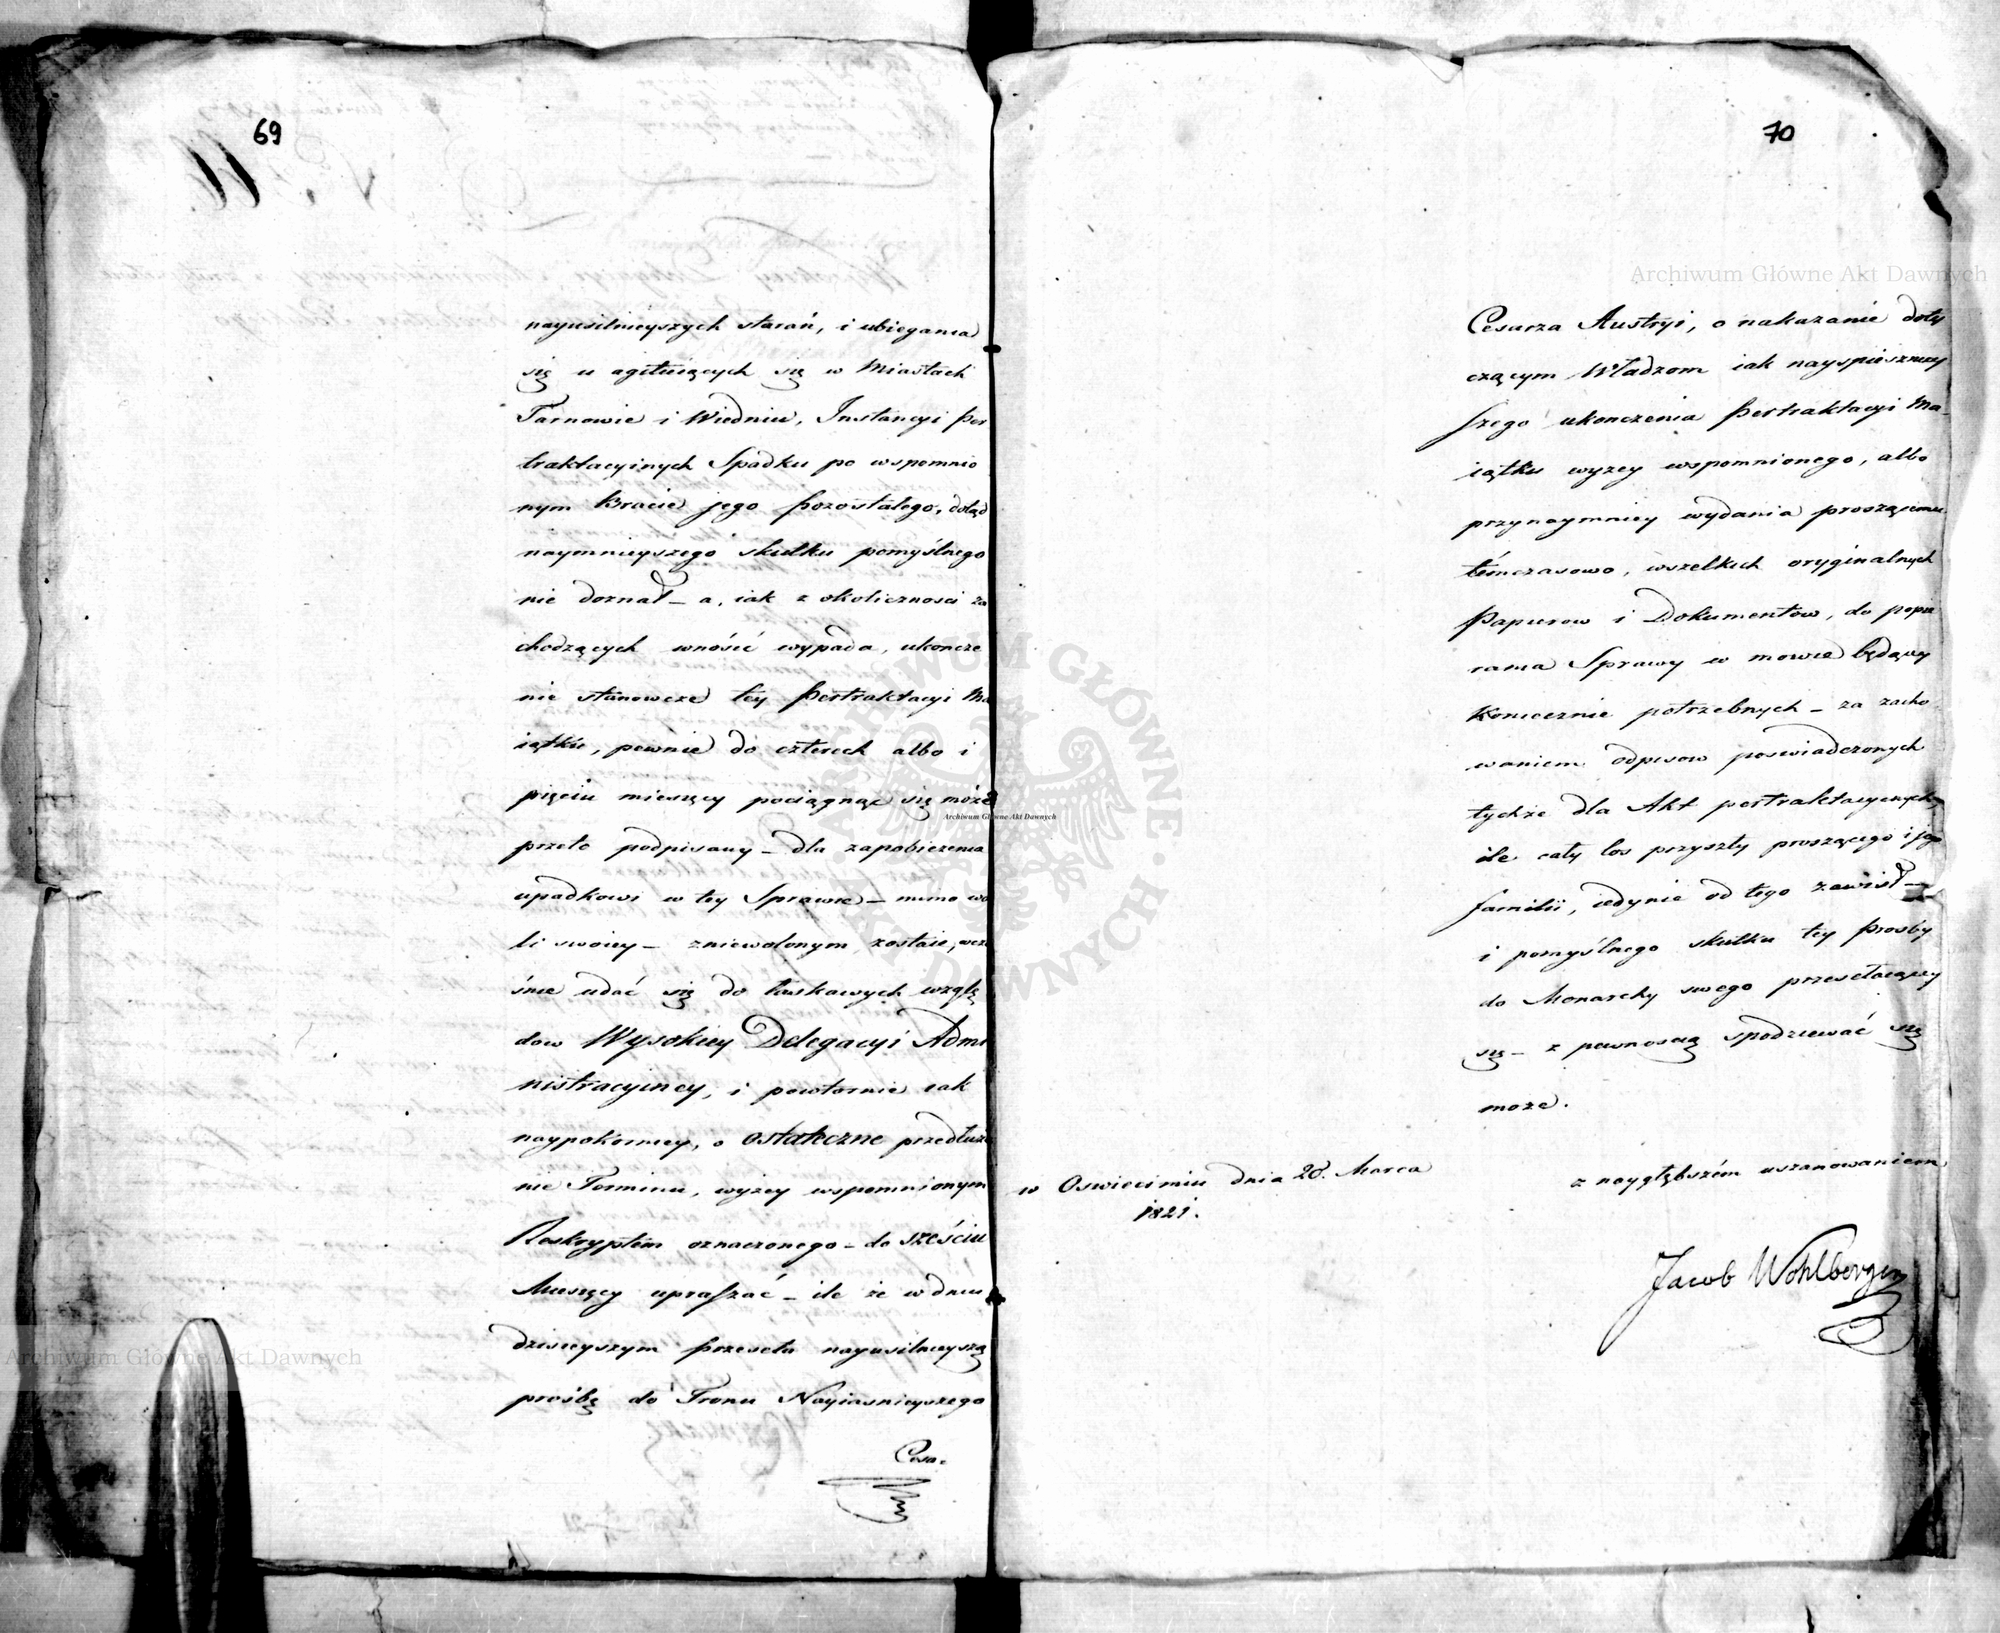 69
nayusilnieyszych starań, i ubiegania
się u agituiących się w Miastach
Tarnowie i Wiedniu, Instancyi per
traktacyinych Spadku po wspomnio
nym Bracie jego pozostałego, dotąd
naymnieyszego skutku pomyślnego
nie doznał – a, iak z okolicznosci za
chodzących wnosić wypada, ukoncze
nie stanowcze tey Pertraktacyi Ma
iątku, pewnie do czterech albo i
pięciu miesięcy pociągnąć się może
przeto podpisany – dla zapobieżenia
upadkowi w tey Sprawie – mimo wo
li swoiey – zniewolonym zostaie, wcze
śnie udać się do łaskawych wzglę
dow Wysokiey Delegacyi Admi
nistracyiney, i powtornie iak
naypokorniey, o ostateczne przedłuże
nie Terminu, wyżey wspomnionym
Reskryptem oznaczonego – do sześciu
Miesięcy upraszać – ile że w dniu
dzisieyszym przeseła nayusilnieyszą
prośbę do Tronu Nayiasnieyszego
Cesa-
70
Cesarza Austryi, o nakazanie doty
czącym Władzom iak nayspieszniey
szego ukonczenia Pertraktacyi Ma-
iątku wyzey wspomnionego, albo
przynaymniey wydania proszącemu
témczasowo, wszelkich oryginalnych
Papierow i Dokumentow, do popie
rania Sprawy w mowie będącey
Koniecznie potrzebnych – za zacho
waniem odpisow poswiadczonych
tychże dla Akt pertraktacyinych,
ile cały los przyszły proszącego i jego
familii, iedynie od tego zawisł –
i pomyślnego skutku tey Prosby
do Monarchy swego przesełaiącey
się – z pewnoscią spodziewać się
może.
w Oswiecimiu dnia 28. Marca
1821.
z naygłębszém uszanowaniem
Jacob Wohlberger
Archiwum Główne Akt Dawnych
Archiwum Główne Akt Dawnych
Archiwum Główne Akt Dawnych
ARCHIWUM GŁÓWNE · AKT DAWNYCH ·